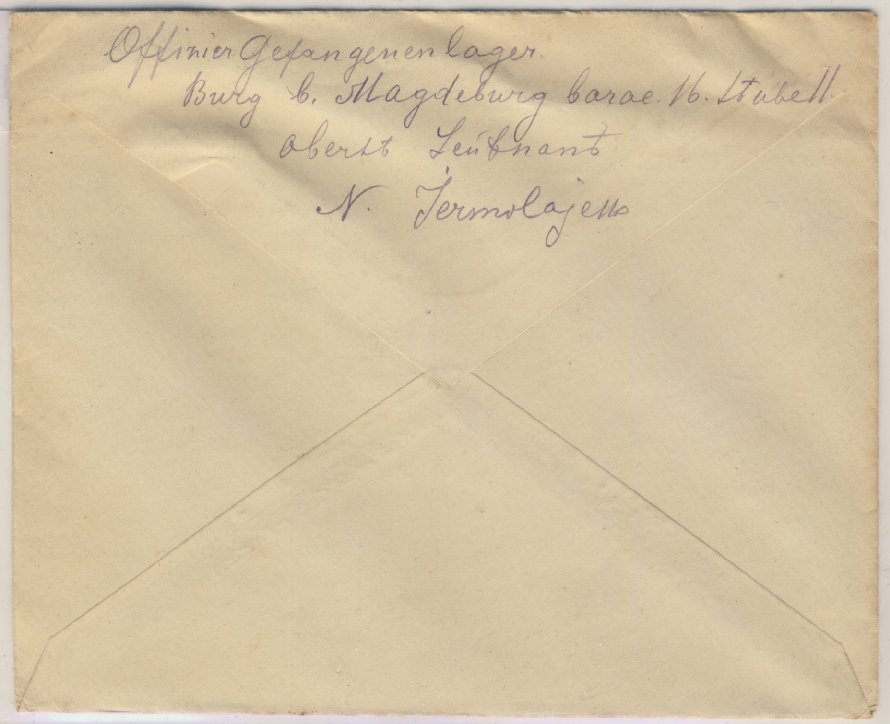 Offizier Gefangenenlager.
Burg b. Magdeburg barac. 16. Stube 11.
Oberst Leutnant
N. Jermolajew